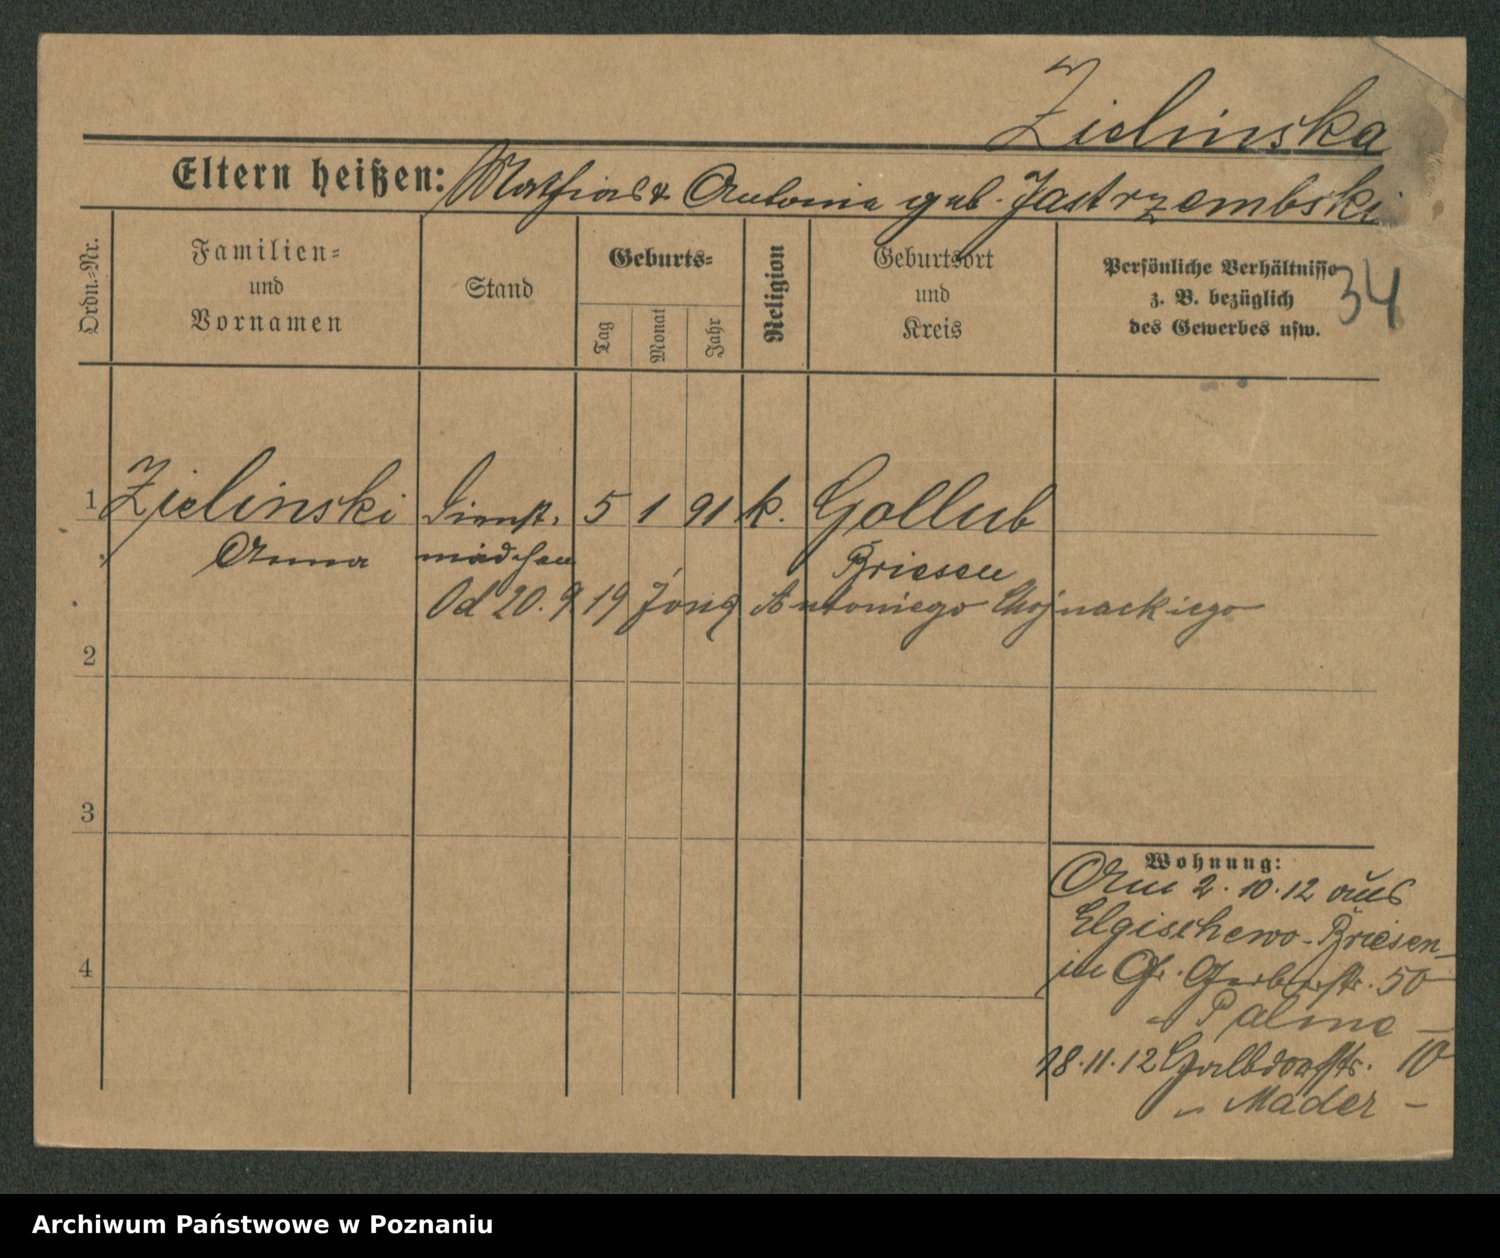 Zielinska
Eltern heißen: Mathias & Antonie geb. Jastrzembski
Ordn.-Nr.
Familien-
und
Vornamen
Stand
Geburts-
Tag
Monat
Jahr
Religion
Geburtsort
und
Kreis
Persönliche Verhältnisse
z. B. bezüglich
des Gewerbes usw.
34
1 Zielinski Dienst. 5 1 91 k. Gollub
Anna mädchen Briesen
Od 20. 9 19 żona Antoniego Chojnackiego
2
3
4
Wohnung:
Am 2. 10. 12 aus
Elgischewo - Briesen
in Gr. Gerberstr. 50
- Palme -
18. 11. 12 Halbdorfstr. 10
- Mader -
Archiwum Państwowe w Poznaniu